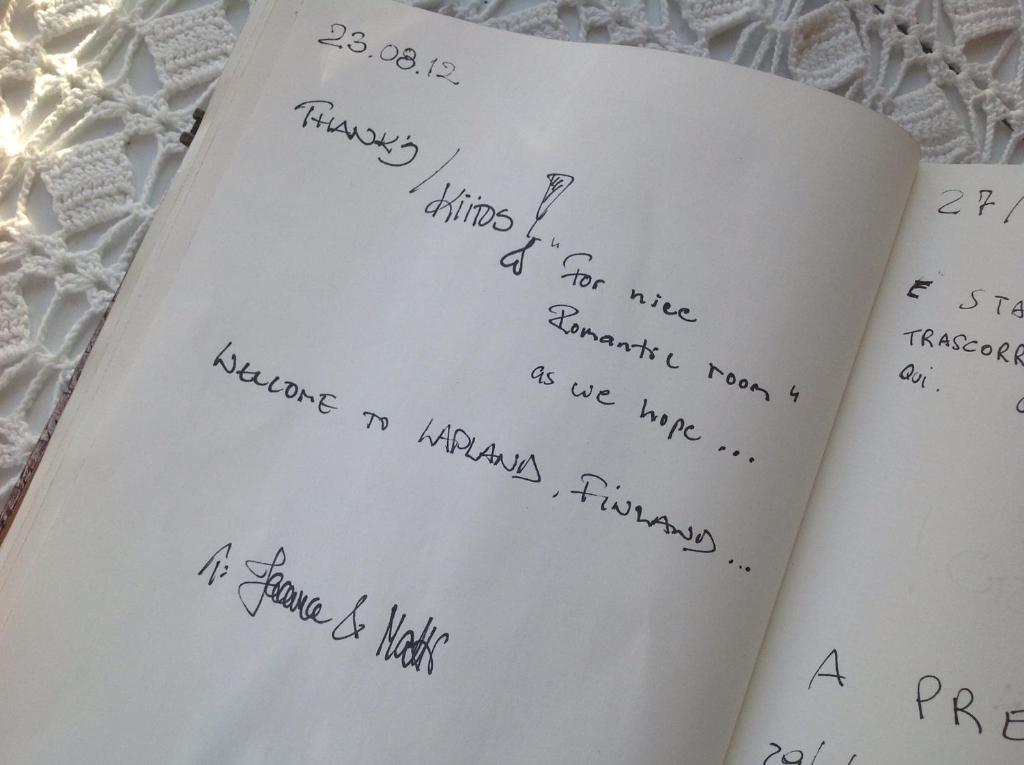 23.08.12
THANK'S / Kiitos!
"For nice
Romantic room"
as we hope ...
WELCOME TO LAPLAND, FINLAND ...
T: & Matti
27/
E STA
TRASCORR
QUI.
A PRE